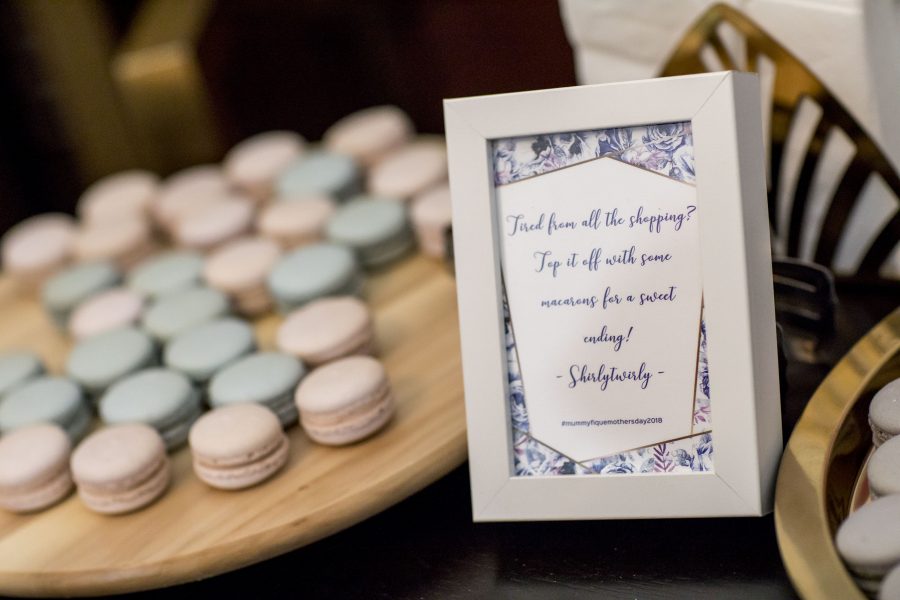 Tired from all the shopping?
Top it off with some
macarons for a sweet
ending!
- Shirlytwirly -
#mummyfiquemothersday2018